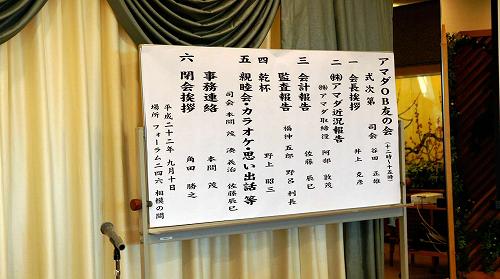 アマダOB友の会 (十二時〜十五時)
式次第 司会 谷田 正雄
一 会長挨拶 井上 克彦
二 ㈱アマダ近況報告
㈱アマダ取締役 阿部 敦茂
三 会計報告 佐藤 辰巳
監査報告 福神 五郎 野呂 利長
四 乾杯 野上 昭三
五 親睦会・カラオケ・思い出話 等
司会 本間 茂 湊 義治 佐藤辰巳
事務連絡 本間 茂
六 閉会挨拶 角田 勝之
平成二十二年 九月十日
場所 フォーラム二四六 相模の間